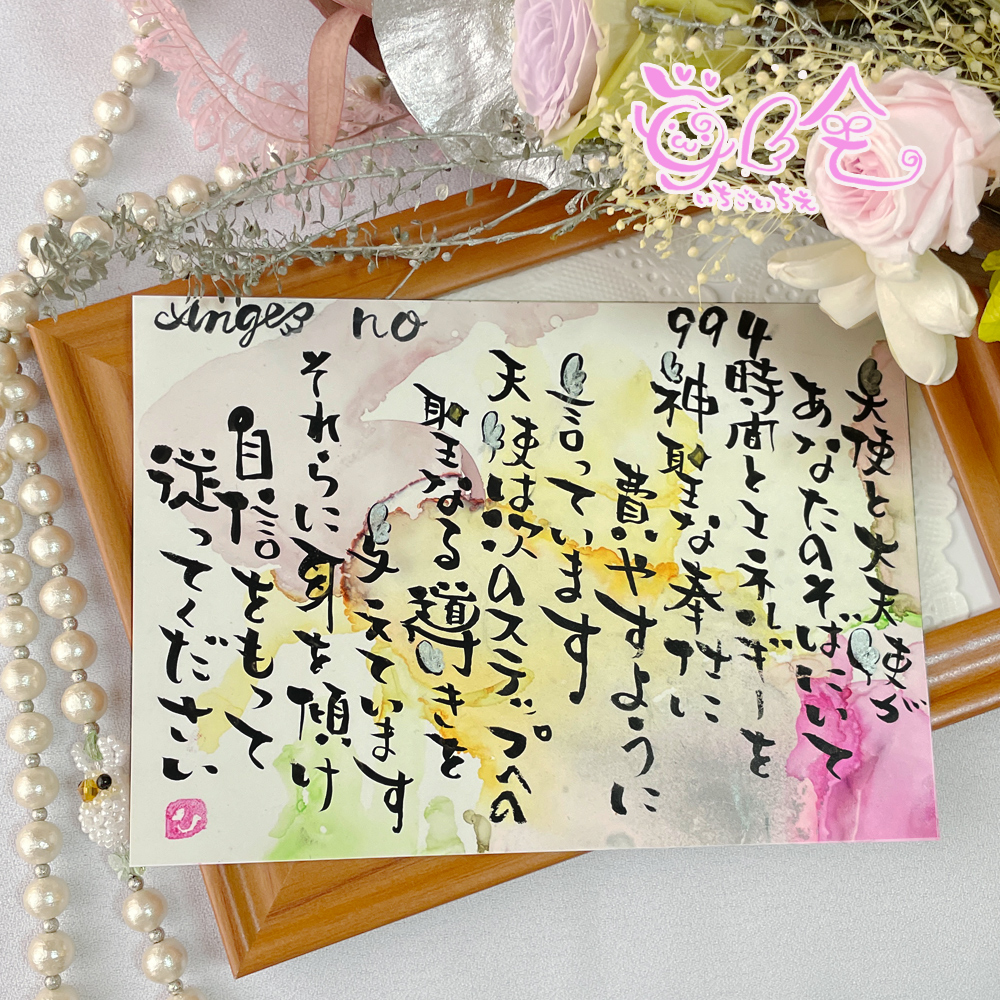 いちごいちえ
Anges no 994
天使と大天使が
あなたのそばにいて
時間とエネルギーを
神聖な奉仕に
費やすように
言っています
天使は次のステップへの
聖なる導きを
与えています
それらに耳を傾け
自信をもって
従ってください